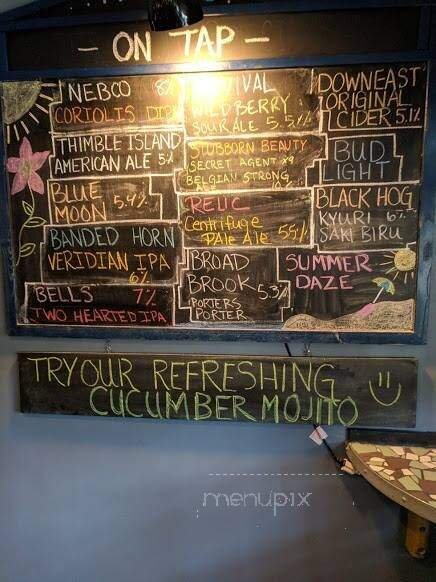 - ON TAP -
NEBCO 8%
CORIOLIS
THIMBLE ISLAND
AMERICAN ALE 5%
BLUE
MOON 5.4%
BANDED HORN
VERIDIAN IPA
6%
BELLS 7%
TWO HEARTED IPA
WILD BERRY
SOUR ALE 5.5%
STUBBORN BEAUTY
SECRET AGENT X9
BELGIAN STRONG
RELIC
Centrifuge
PALE Ale 5.5%
BROAD
BROOK 5.3%
PORTERS
PORTER
DOWNEAST
ORIGINAL
CIDER 5.1%
BUD
LIGHT
BLACK HOG
KYURI 6%
SAKI BIRU
SUMMER
DAZE
TRY OUR REFRESHING
CUCUMBER MOJITO
menupix